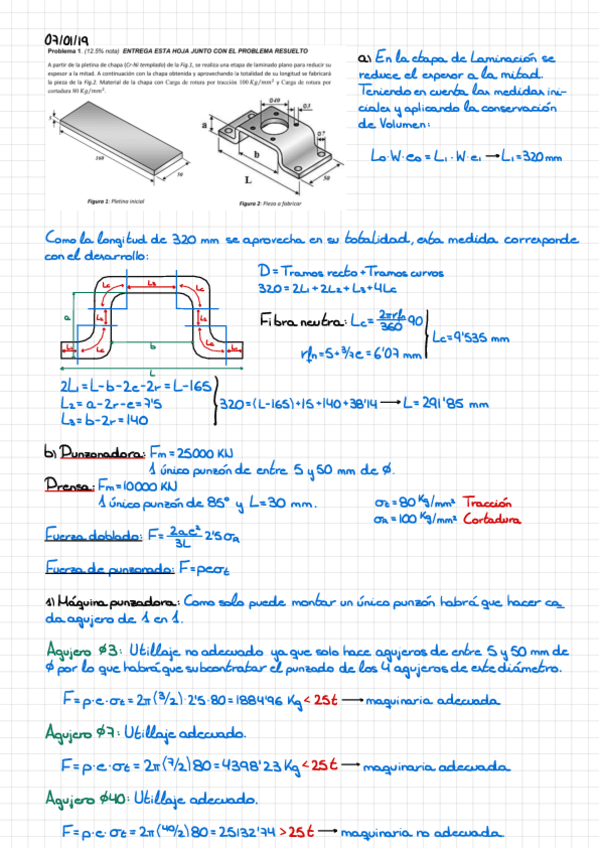 07/01/19
Problema 1. (12.5% nota) ENTREGA ESTA HOJA JUNTO CON EL PROBLEMA RESUELTO
A partir de la pletina de chapa (Cr-Ni templado) de la Fig.1, se realiza una etapa de laminado plano para reducir su
espesor a la mitad. A continuación con la chapa obtenida y aprovechando la totalidad de su longitud se fabricará
la pieza de la Fig.2. Material de la chapa con Carga de rotura por tracción 100 Kg/mm² y Carga de rotura por
cortadura 80 Kg/mm².
5
160
50
Figura 1: Pletina inicial
a
b
L
50
Figura 2: Pieza a fabricar
a) En la etapa de Laminación se
reduce el espesor a la mitad.
Teniendo en cuenta las medidas ini-
ciales y aplicando la conservación
de Volumen:
L0·W·e0 = L1·W·e1 → L1=320mm
Como la longitud de 320 mm se aprovecha en su totalidad, esta medida corresponde
con el desarrollo:
Lc L3 Lc
a L2 L2
L1 Lc b Lc L1
L
D = Tramos recto + Tramos curvos
320 = 2L1 + 2L2 + L3 + 4Lc
Fibra neutra: Lc = 2πrfn/360 90
rfn = 5 + 3/7e = 6'07 mm
Lc = 9'535 mm
2L1 = L-b-2e-2r = L-165
L2 = a-2r-e = 7'5
L3 = b-2r = 140
320 = (L-165)+15+140+38'14 → L = 291'85 mm
b) Punzonadora: Fm = 25000 KN
1 único punzón de entre 5 y 50 mm de Ø.
Prensa: Fm = 10000 KN
1 único punzón de 85° y L = 30 mm.
σt = 80 Kg/mm² Tracción
σR = 100 Kg/mm² Cortadura
Fuerza doblado: F = 2ae²/3L 2'5σR
Fuerza de punzonado: F = peσt
1) Máquina punzadora: Como solo puede montar un único punzón habrá que hacer ca
da agujero de 1 en 1.
Agujero Ø3: Utillaje no adecuado ya que solo hace agujeros de entre 5 y 50 mm de
Ø por lo que habrá que subcontratar el punzado de los 4 agujeros de este diámetro.
F = p·e·σt = 2π(3/2)·2'5·80 = 1884'96 Kg < 25t → maquinaria adecuada
Agujero Ø7: Utillaje adecuado.
F = p·e·σt = 2π(7/2)80 = 4398'23 Kg < 25t → maquinaria adecuada
Agujero Ø40: Utillaje adecuado.
F = p·e·σt = 2π(40/2)80 = 25132'74 > 25t → maquinaria no adecuada